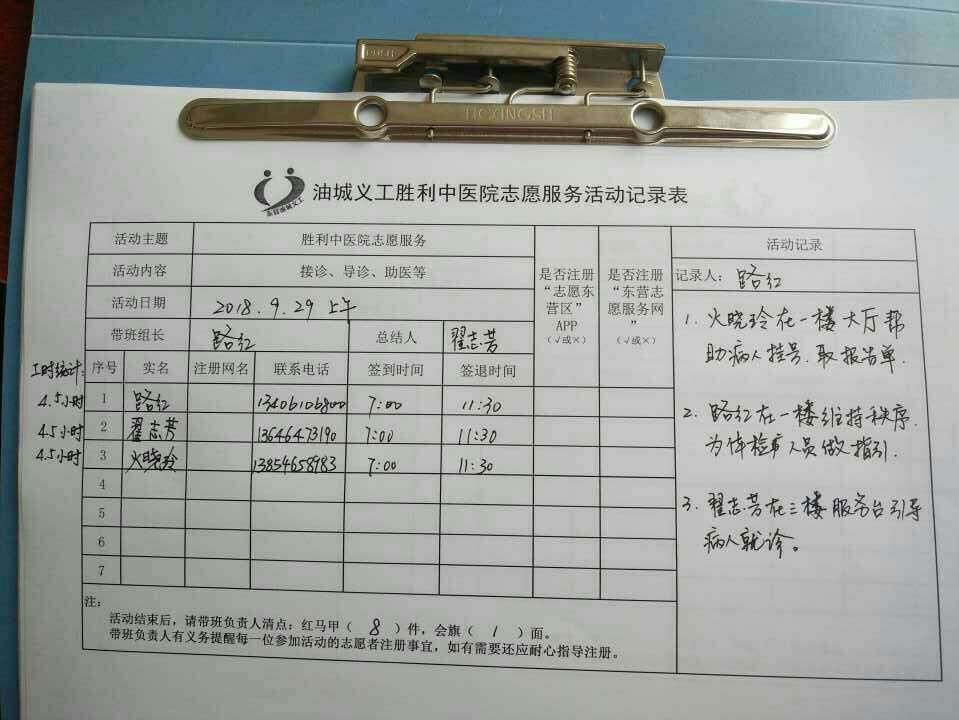 HCXINGSH
东营油城义工
油城义工胜利中医院志愿服务活动记录表
活动主题 胜利中医院志愿服务
活动内容 接诊、导诊、助医等
活动日期 2018.9.29 上午
带班组长 路红 总结人 翟志芳
是否注册“志愿东营区”APP（√或×）
是否注册“东营志愿服务网”（√或×）
工时统计: 序号 实名 注册网名 联系电话 签到时间 签退时间
4.5小时 1 路红 13406106800 7:00 11:30
4.5小时 2 翟志芳 13646473190 7:00 11:30
4.5小时 3 火晓玲 13854658983 7:00 11:30
4
5
6
7
活动记录
记录人: 路红
1. 火晓玲在一楼大厅帮
助病人挂号.取报告单.
2. 路红在一楼维持秩序.
为体检人员做指引.
3. 翟志芳在三楼服务台引导
病人就诊。
注:
活动结束后，请带班负责人清点：红马甲（ 8 ）件，会旗（ 1 ）面。
带班负责人有义务提醒每一位参加活动的志愿者注册事宜，如有需要还应耐心指导注册。